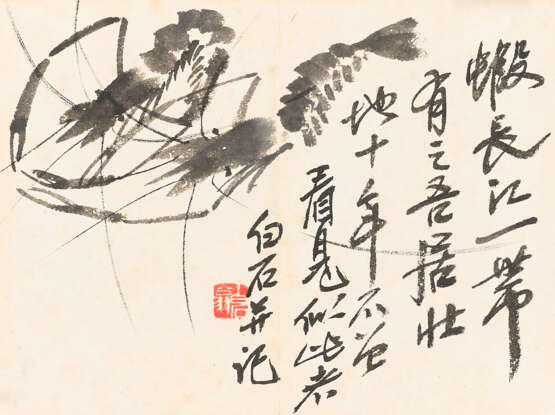 蝦長江一帶
有之吾居北
地十年不曾
看見似此者
白石并记